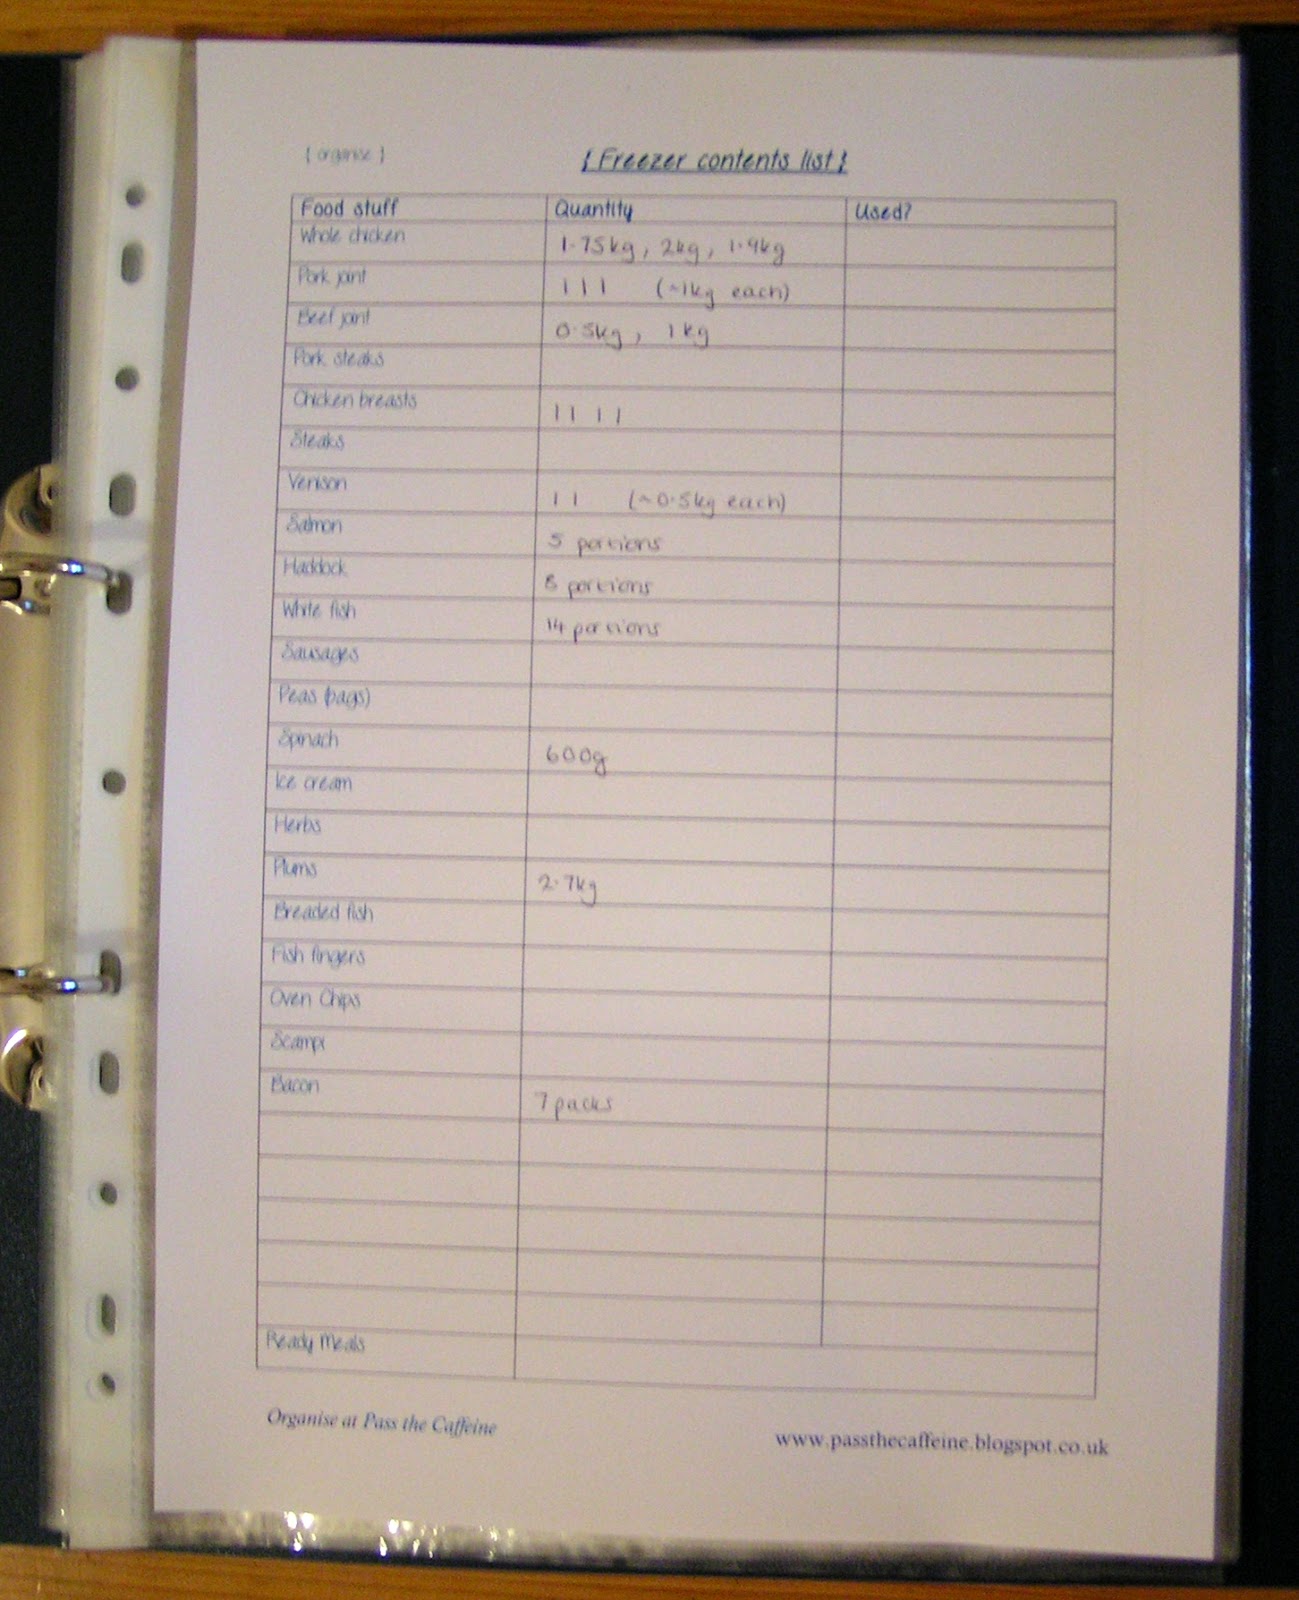 { organise } {Freezer contents list}
Food stuff Quantity Used?
Whole chicken 1.75kg, 2kg, 1.9kg
Pork joint I I I (~1kg each)
Beef joint 0.5kg, 1kg
Pork steaks
Chicken breasts I I I I
Steaks
Venison I I (~0.5kg each)
Salmon 5 portions
Haddock 8 portions
White fish 14 portions
Sausages
Peas (bags)
Spinach 600g
Ice cream
Herbs
Plums 2.7kg
Breaded fish
Fish fingers
Oven Chips
Scampi
Bacon 7 packs
Ready Meals
Organise at Pass the Caffeine www.passthecaffeine.blogspot.co.uk